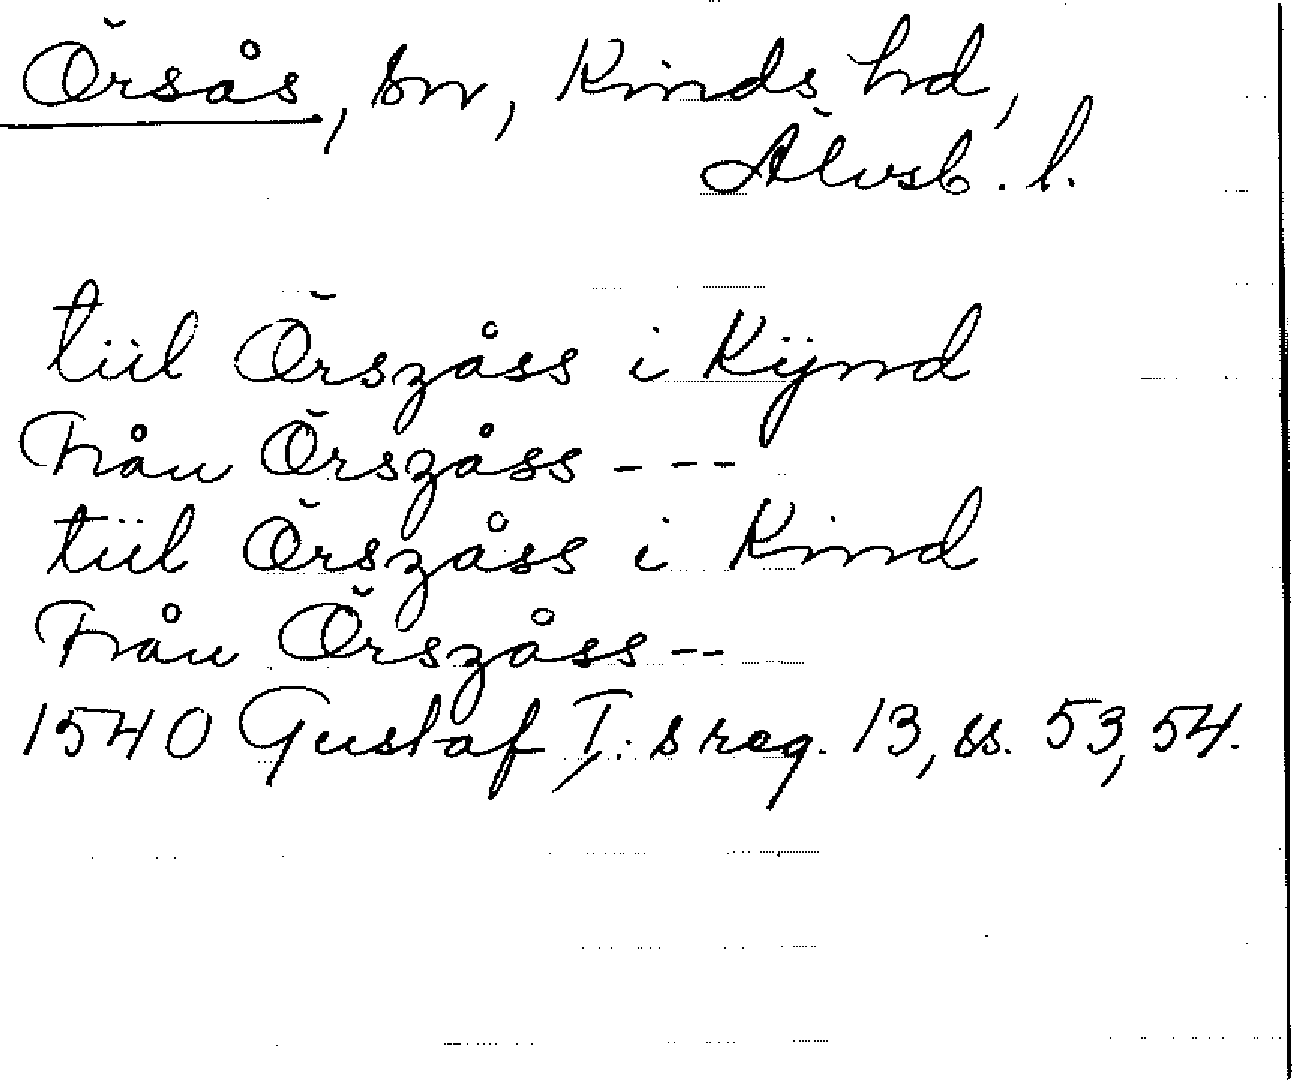 Örsås, sn, Kinds hd,
Älvsb. l.
tiil Örszåss i Kÿnd
Från Örszåss - ---
tiil Örszåss i Kind
Från Örszåss --
1540 Gustaf I:s reg. 13, ss. 53, 54.